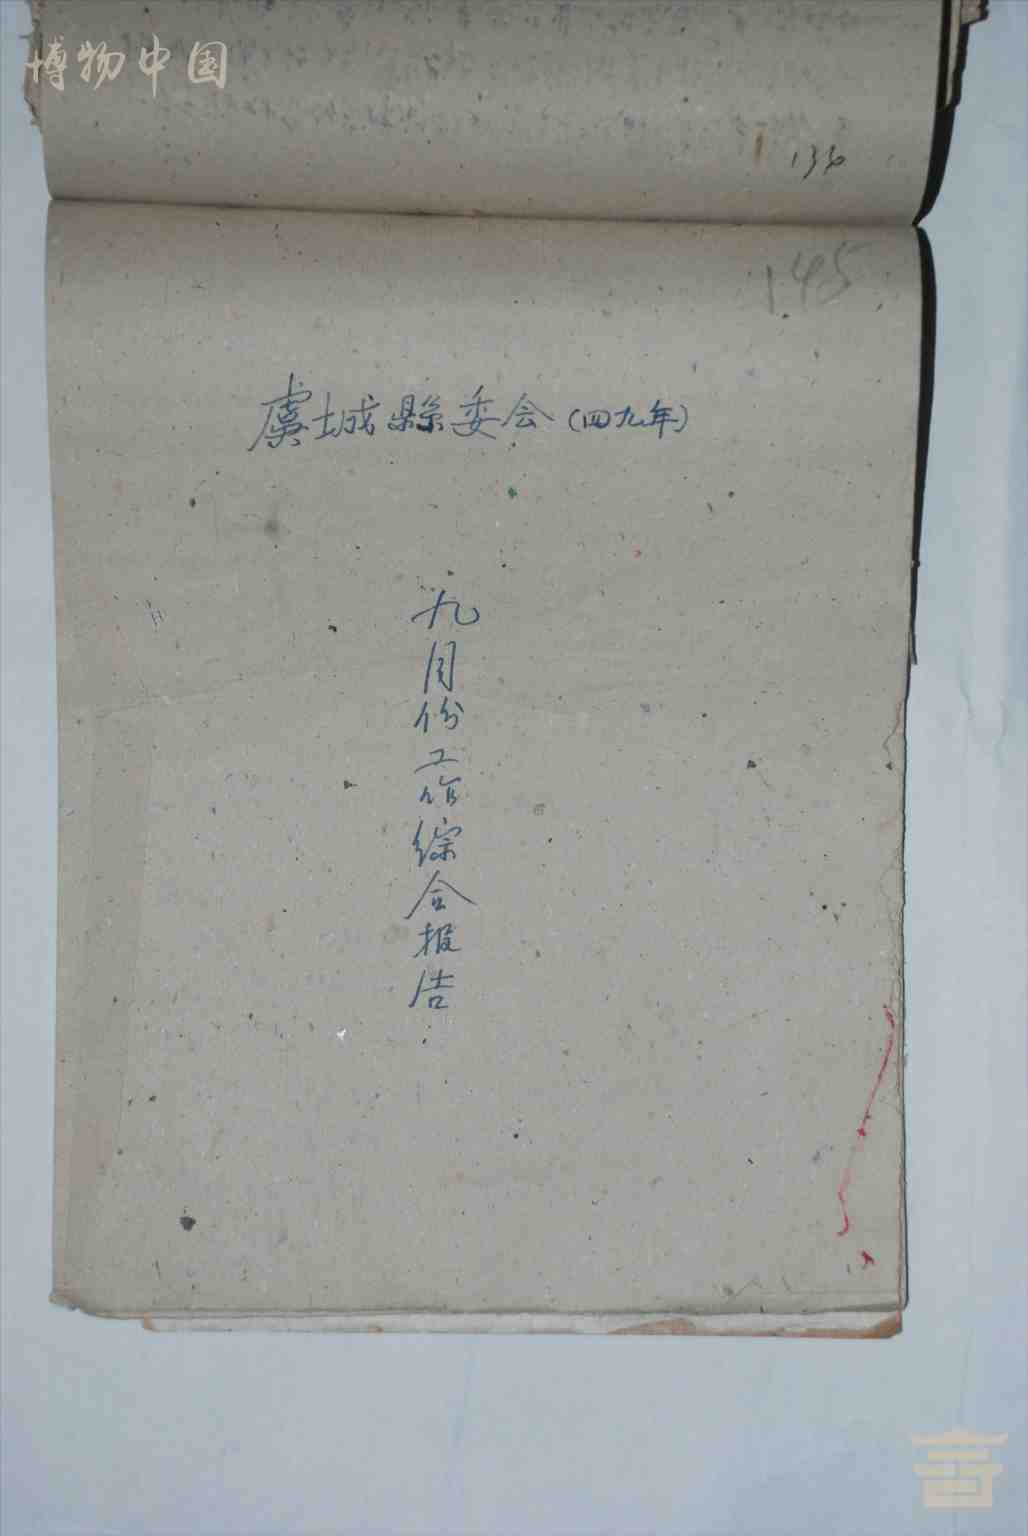 博物中国
136
145
虞城縣委会(四九年)
九月份工作綜合报告